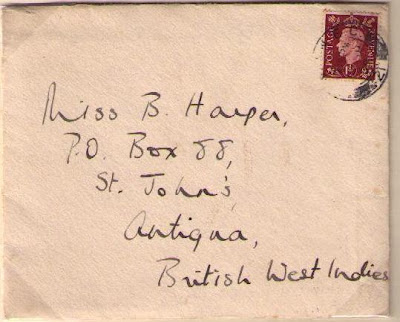 POSTAGE REVENUE
1½D
Miss B. Harper,
P.O. Box 88,
St. John's,
Antigua,
British West Indies